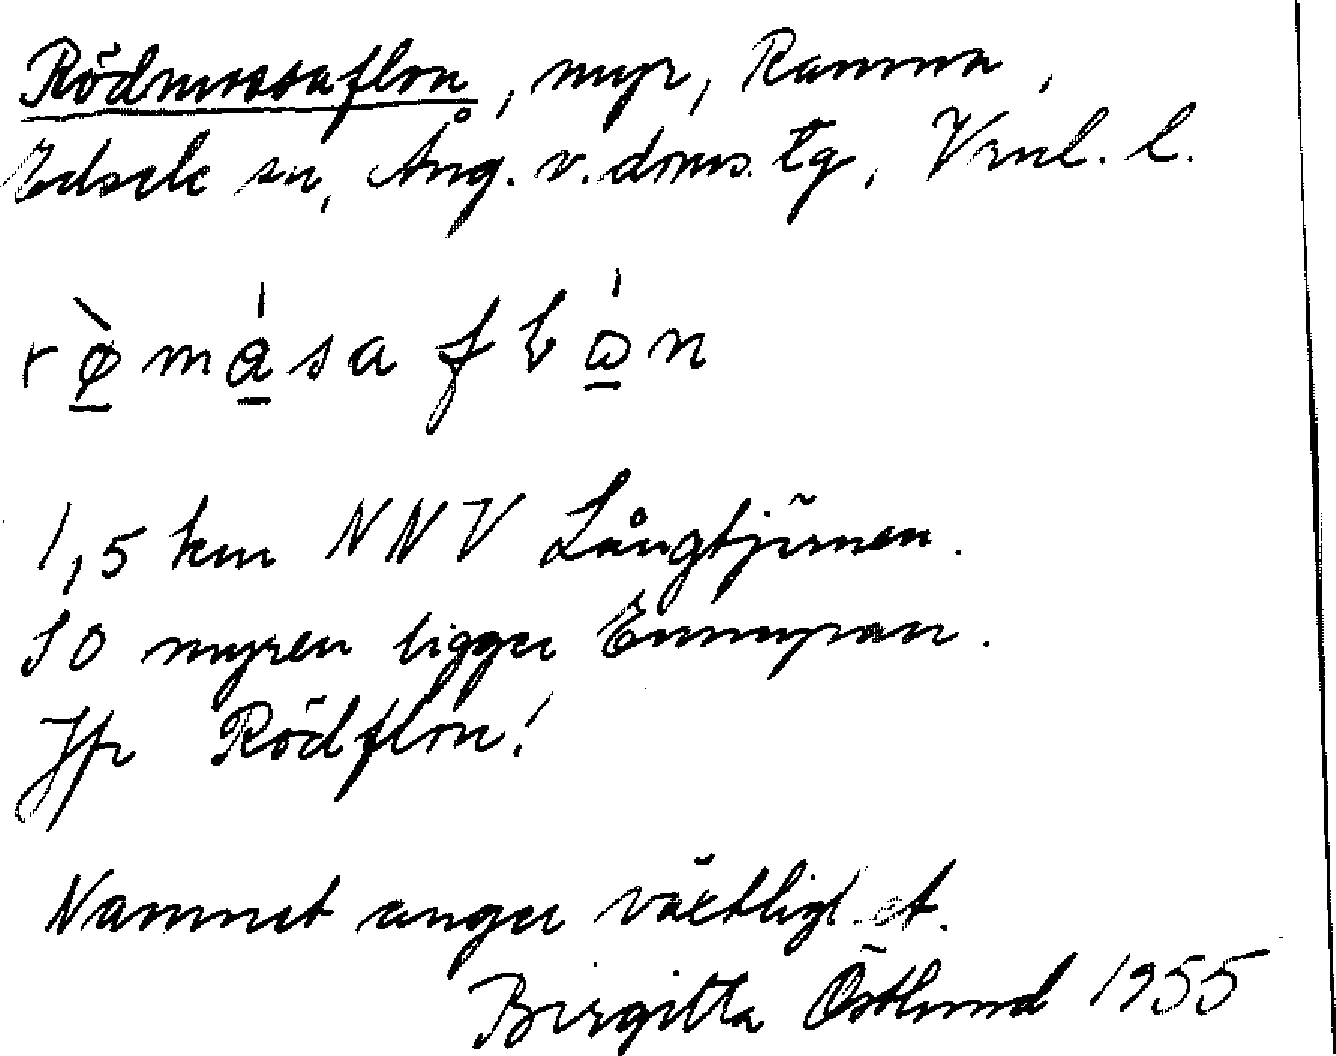 Rödmossaflon, myr, Ramna,
Edsele sn, Ång. v. doms. tg, Vnl. l.
rø̀mása flón
1,5 km NNV Långtjärnen.
SO myren ligger
Jfr Rödflon!
Namnet anger växtlighet.
Birgitta Östlund 1955